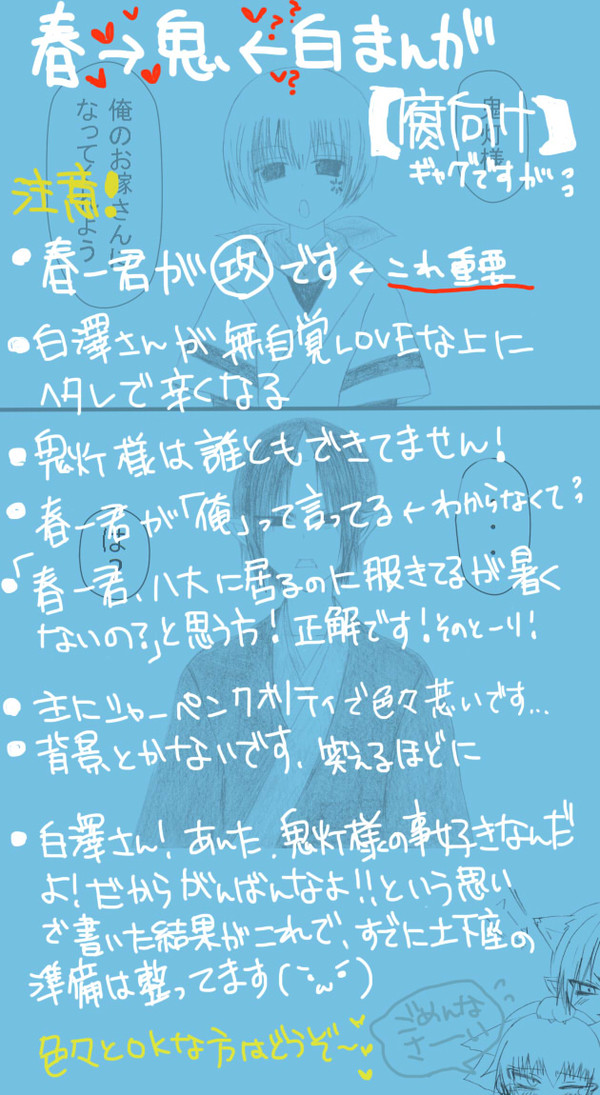 春→鬼、←白まんが
??
?
【腐向け】
ギャグですが…
鬼灯様
俺のお嫁さんに
なってくれよう
注意!
・春一君が攻です←これ重要
・白澤さんが無自覚LOVEな上に
ヘタレで辛くなる
・鬼灯様は誰ともできてません!
・春一君が「俺」って言ってる←わからなくて
・・・
は?
・「春一君、八大に居るのに服きてるが暑く
ないの?」と思う方!正解です!そのとーり!
・主にシャーペンクオリティで色々荒いです…
・背景とかないです、笑えるほどに
・白澤さん!あんた、鬼灯様の事好きなんだ
よ!だからがんばんなよ!!という思い
で書いた結果がこれで、すでに土下座の
準備は整ってます(´・ω・`)
ごめんな
さーい
色々とOKな方はどうぞ~